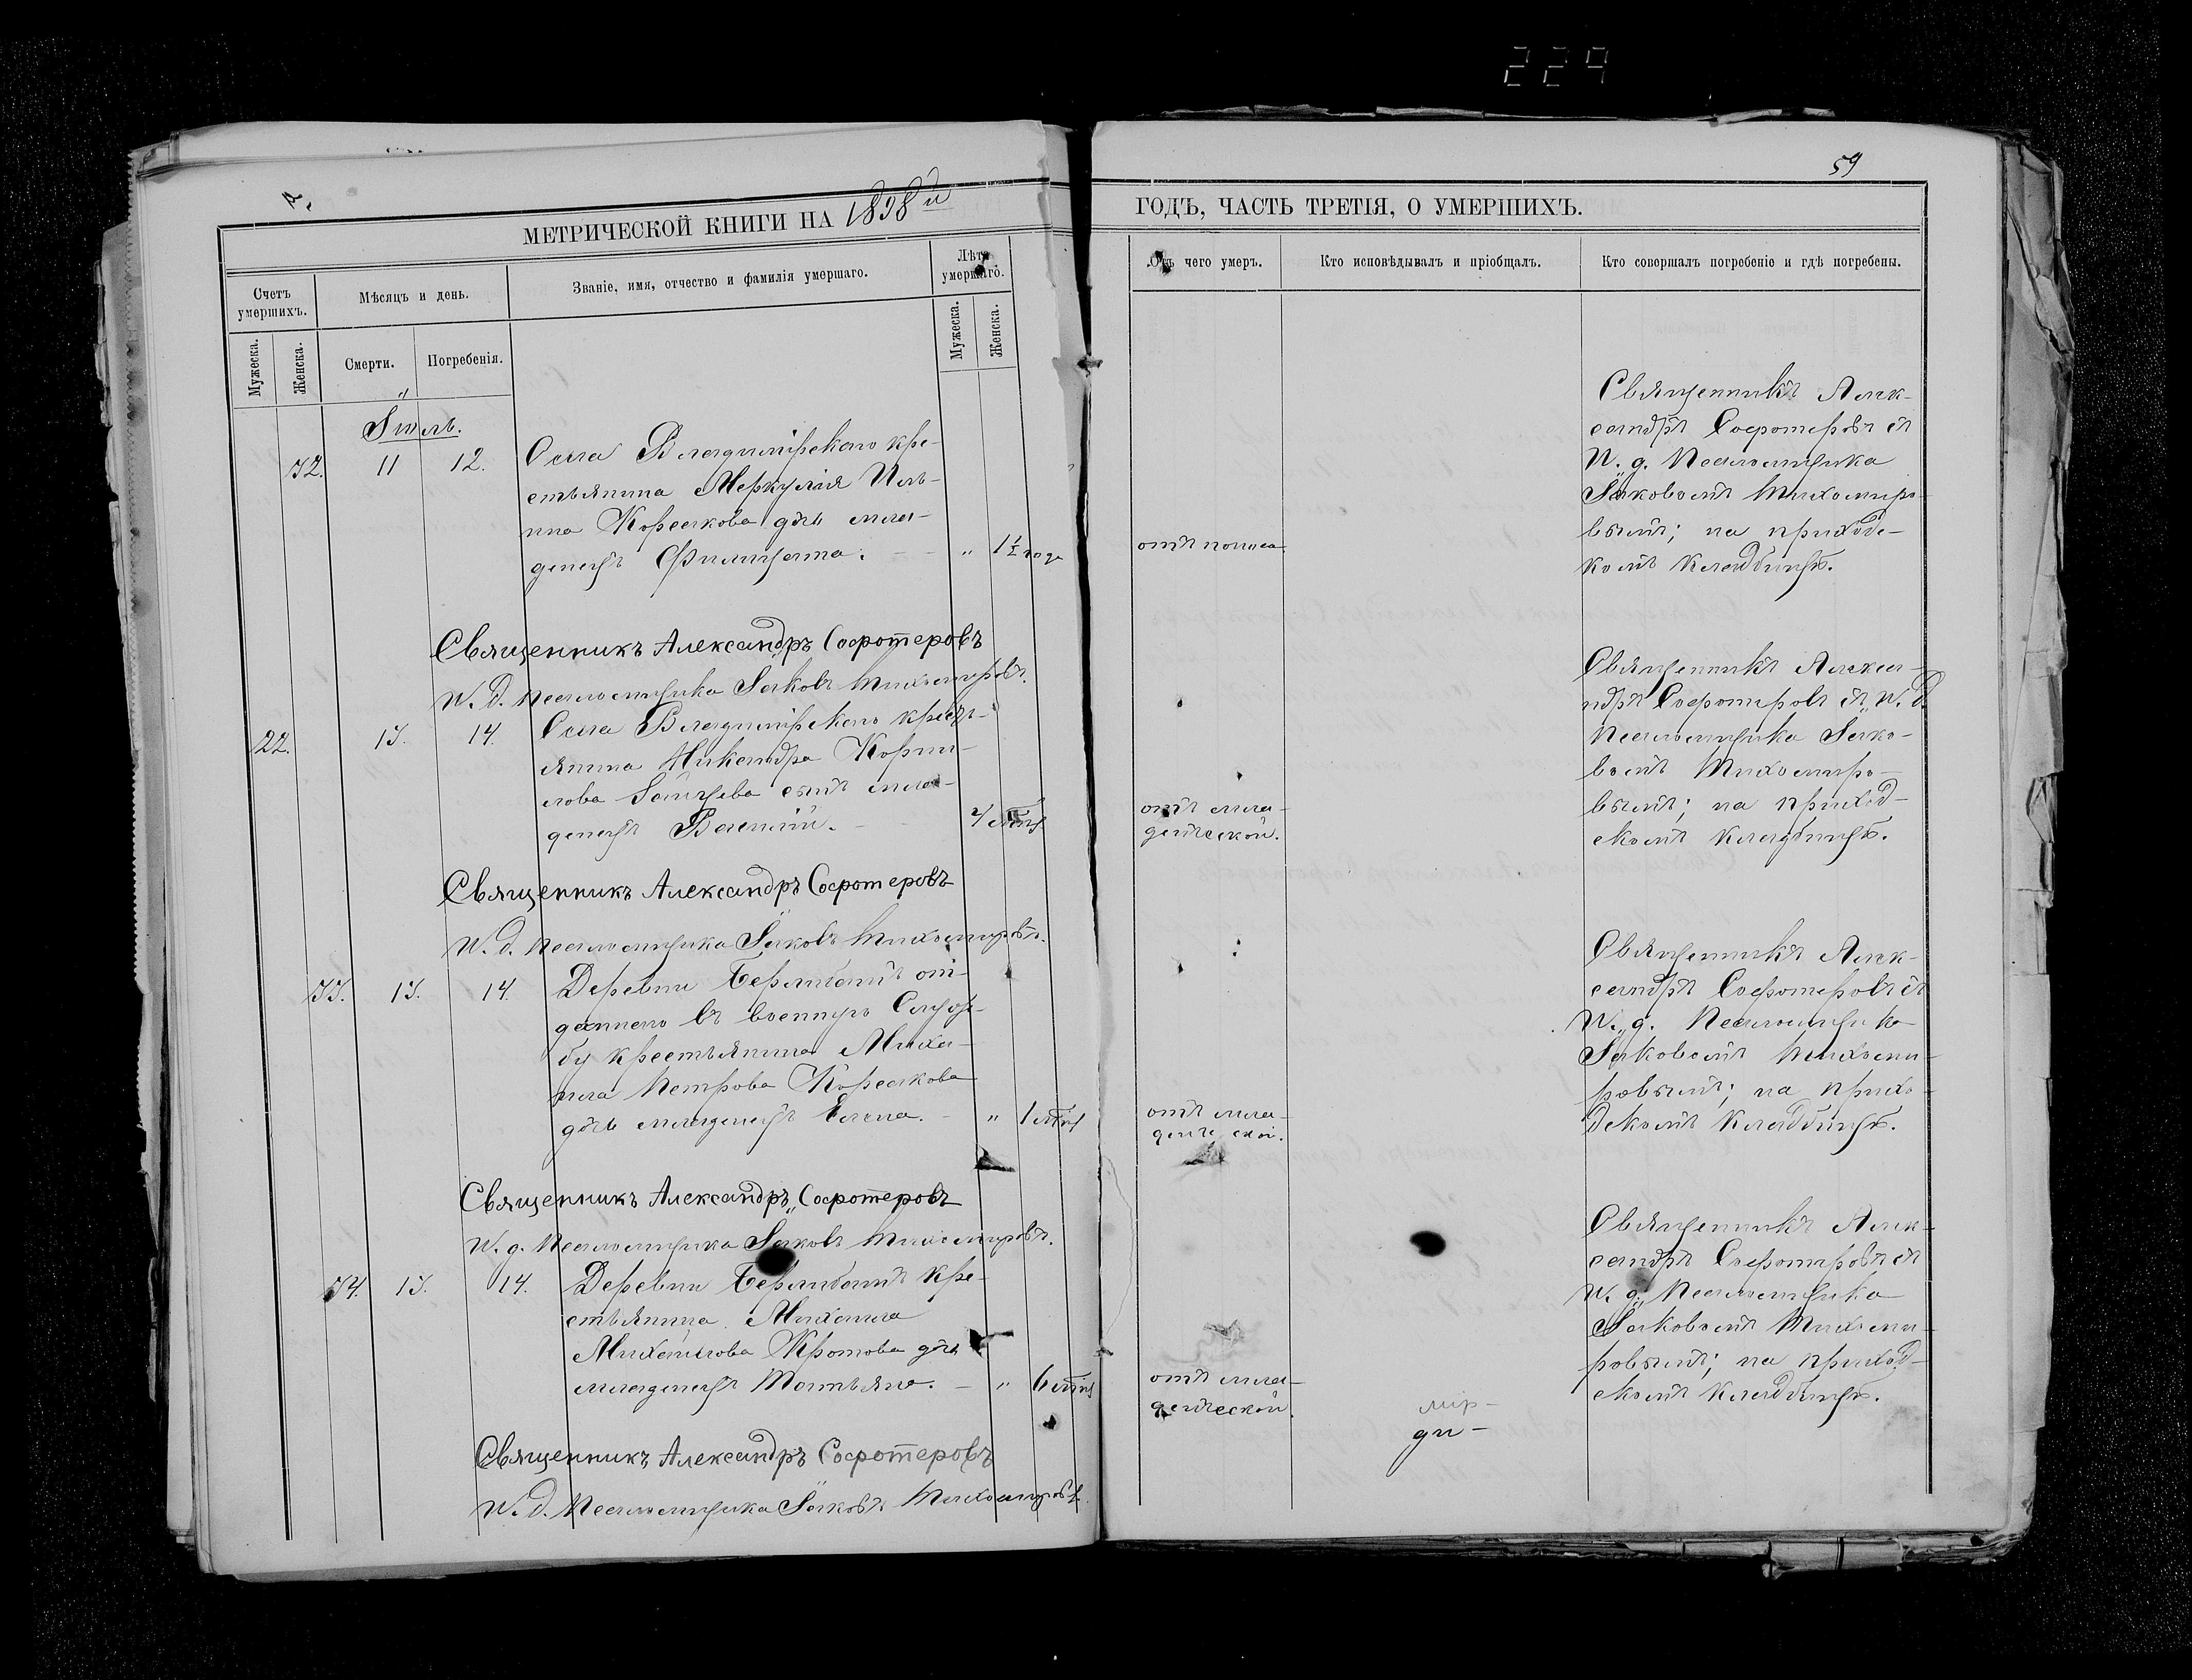 224
59
МЕТРИЧЕСКОЙ КНИГИ НА 1898й
ГОДЪ, ЧАСТЬ ТРЕТІЯ, О УМЕРШИХЪ.
Счетъ умершихъ.
Мѣсяцъ и день.
Званіе, имя, отчество и фамилія умершаго.
Лѣта умершаго.
Мужеска.
Женска.
Смерти.
Погребенія.
Мужеска.
Женска.
Отъ чего умеръ.
Кто исповѣдывалъ и пріобщалъ.
Кто совершалъ погребеніе и гдѣ погребены.
Іюль.
32. 11 12.
Села Владимірскаго кре-
стьянина Меркулія Иль-
ина Корсакова дчь мла-
денецъ Филицата. " 1½ года
отъ поноса
Священникъ Алек-
сандръ Софотеровъ съ
И. д. Псаломщика
Іаковомъ Тихомиро-
вымъ; на приходс-
комъ кладбищѣ.
Священникъ Александръ Софотеровъ
И. д. Псаломщика Іаковъ Тихомировъ.
22. 13. 14.
Села Владимірскаго кресть-
янина Никандра Корни-
лова Зайцева сынъ мла-
денецъ Василій.
отъ мла-
денческой.
Священникъ Алекса-
ндръ Софотеровъ съ И. д.
Псаломщика Іако-
вомъ Тихомиро-
вымъ; на приход-
скомъ кладбищѣ.
Священникъ Александръ Софотеровъ
И. д. Псаломщика Іаковъ Тихомировъ.
33. 13. 14.
Деревни от-
даннаго въ военную служ-
бу крестьянина Миха-
ила Петрова Корсакова
дчь младенецъ Елена. " 1 мѣсяц
отъ мла-
денческой.
Священникъ Алек-
сандръ Софотеровъ съ
И. д. Псаломщика
Іаковомъ Тихоми-
ровымъ; на прихо-
дскомъ кладбищѣ.
Священникъ Александръ Софотеровъ
И. д. Псаломщика Іаковъ Тихомировъ.
34. 13. 14.
Деревни кре-
стьянина Михаила
Михайлова Кротова дчь
младенецъ Татьяна. " 6 мѣсяц
отъ мла-
денческой.
Священникъ Алек-
сандръ Софотеровъ съ
И. д. Псаломщика
Іаковомъ Тихоми-
ровымъ; на приход-
скомъ кладбищѣ.
Священникъ Александръ Софотеровъ
И. д. Псаломщика Іаковъ Тихомировъ.